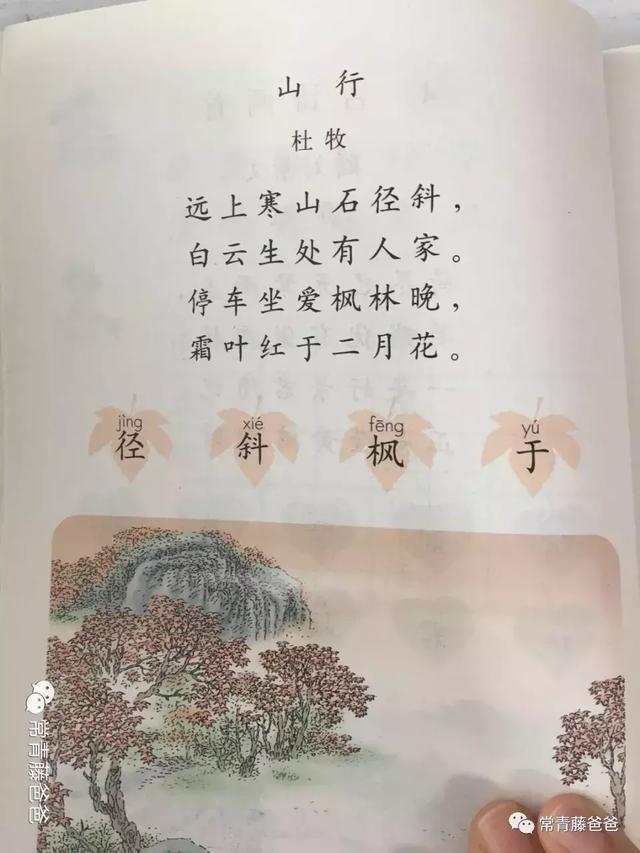 山行
杜牧
远上寒山石径斜，
白云生处有人家。
停车坐爱枫林晚，
霜叶红于二月花。
jìng xié fēng yú
径 斜 枫 于
常青藤爸爸
常青藤爸爸